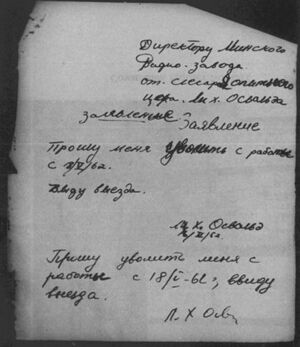 Директору Минского
Радио-завода
от слесаря Опытного
цеха. Ли х. Освальда
Заявление
Прошу меня уволить с работы
с /V/62.
ввиду выезда.
Ли Х. Освальд
/V/62
Прошу уволить меня с
работы с 18/V-62г, ввиду
выезда.
Л. Х Осв